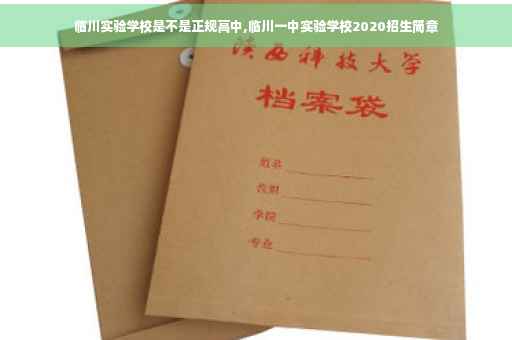 临川实验学校是不是正规高中,临川一中实验学校2020招生简章
陕西科技大学
档案袋
姓名
学院
专业